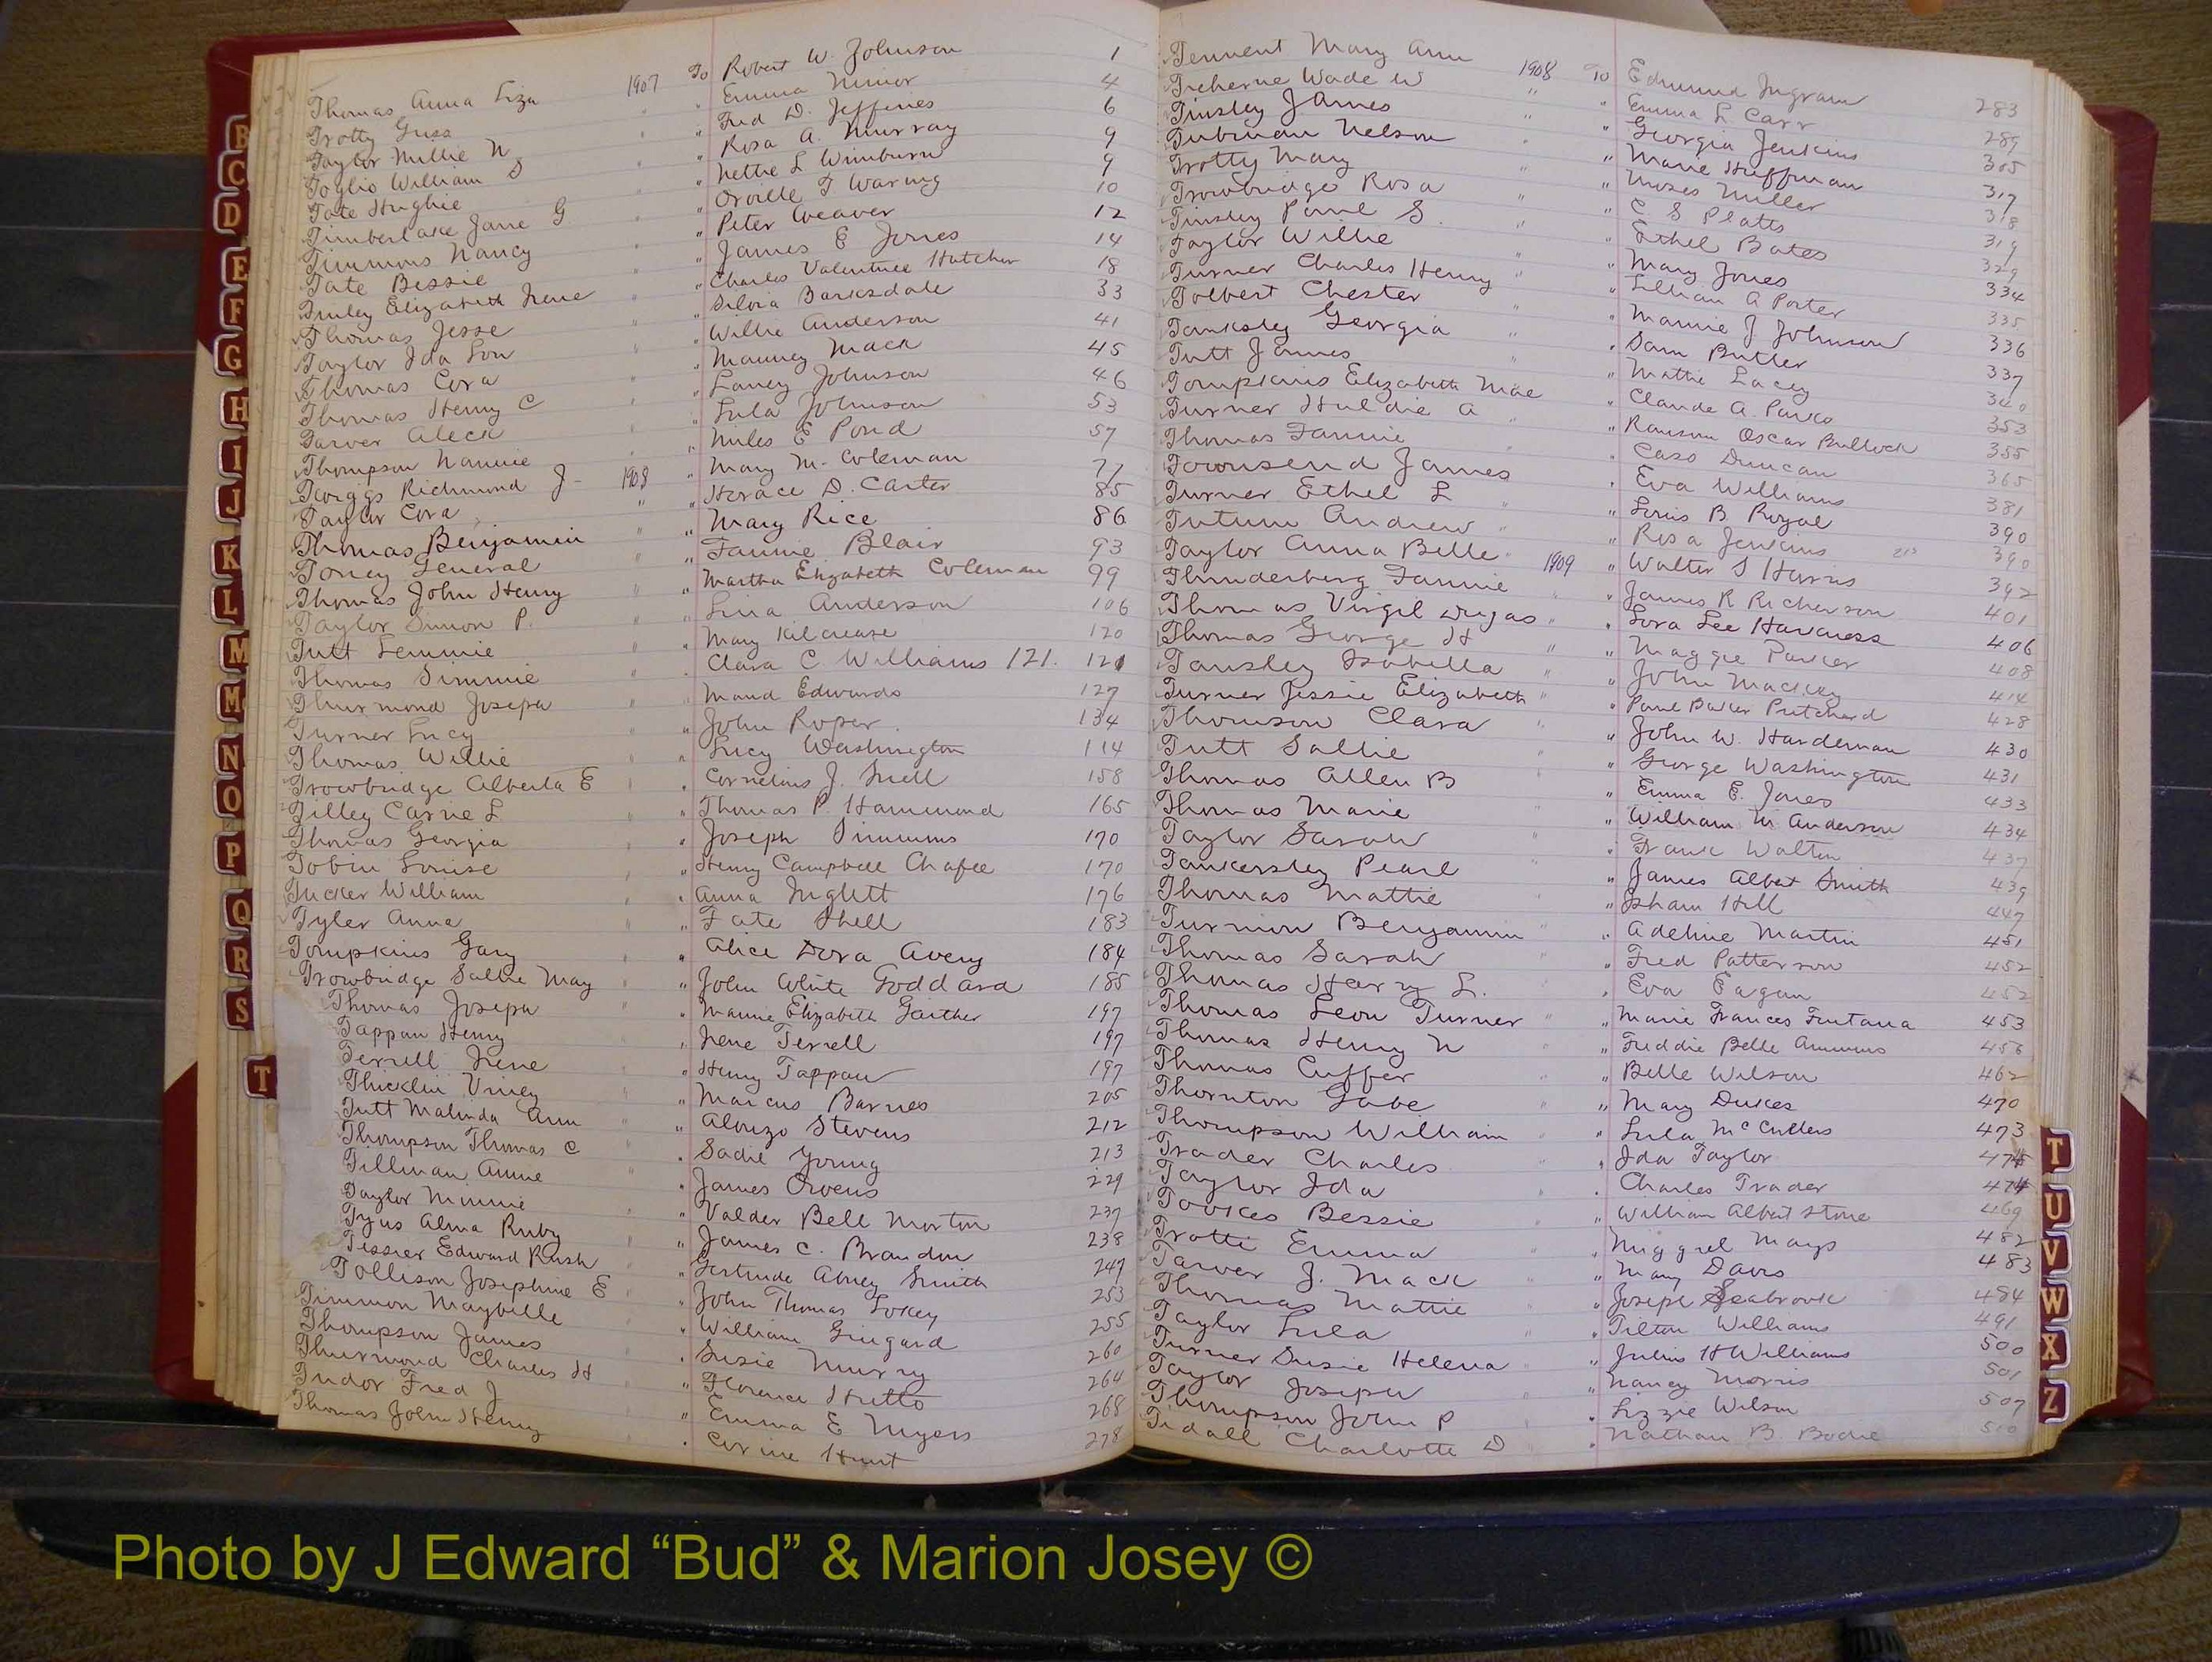 Thomas Anna Liza 1907 To Robert W. Johnson 1
Trotty Gussa " " Emma Minor 4
Taylor Millie N " " Fred D. Jefferies 6
Toglio William S " " Rosa A. Murray 9
Tate Hughie " " Nettie L Wimburn 9
Timberlake Jane G " " Orville T Waring 10
Timmons Nancy " " Peter Weaver 12
Tate Bessie " " James E Jones 14
Elizabeth Irene " " Charles Valentine Hatcher 18
Thomas Jesse " " Silvia Barksdale 33
Taylor Ida Lou " " Willie Anderson 41
Thomas Cora " " Manney Mack 45
Thomas Henry C " " Laney Johnson 46
Tarver Aleck " " Lula Johnson 53
Thompson Nannie " " Miles E Pond 57
Twiggs Richmond J- 1908 " Mary M. Coleman 77
Taylor Cora " " Horace D. Carter 85
Thomas Benjamin " " Mary Rice 86
Toney General " " Fannie Blair 93
Thomas John Henry " " Martha Elizabeth Coleman 99
Taylor Simon P. " " Lina Anderson 106
Tutt Lemmie " " Mary Kilcrease 120
Thomas Simmie " " Clara C. Williams 121. 121
Thurmond Joseph " " Maud Edwards 127
Turner Lucy " " John Roper 134
Thomas Willie " " Lucy Washington 114
Trowbridge Alberta E " " Cornelius J. Snell 158
Tilley Carrie L " " Thomas P. Hammond 165
Thomas Georgia " " Joseph Simmons 170
Tobin Louise " " Henry Campbell Chafee 170
Tucker William " " Anna Inglett 176
Tyler Anna " " Fate Shell 183
Tompkins Gary " " Alice Dora Avery 184
Trowbridge Sallie May " " John White Goddard 185
Thomas Joseph " " Mamie Elizabeth Gaither 197
Tappan Henry " " Irene Terrell 197
Terrell Irene " " Henry Tappan 197
Thicklin Viney " " Marcus Barnes 205
Tutt Malinda Ann " " Alonzo Stevens 212
Thompson Thomas C " " Sadie Young 213
Tillman Annie " " James Owens 229
Taylor Minnie " " Valder Bell Morton 237
Tyus Alma Ruby " " James C. Brandon 238
Tessier Edward Rush " " Gertrude Abney Smith 247
Tollison Josephine E " " John Thomas Lokey 253
Timmon Maybelle " " William Gingard 255
Thompson James " " Susie Murry 260
Thurmond Charles H " " Florence Hutto 264
Tudor Fred J " " Emma E Myers 268
Thomas John Henry " " Corine Hunt 278
Tennent Mary Ann 1908 To Edmund Ingram 283
Treherne Wade W " " Emma L Carr 289
Tinsley James " " Georgia Jenkins 305
Tubman Nelson " " Marie Huffman 317
Trotty Mary " " Moses Miller 318
Trowbridge Rosa " " C S Platts 319
Tinsley Paul S. " " Ethel Bates 329
Taylor Willie " " Mary Jones 334
Turner Charles Henry " " Lillian A Porter 335
Tolbert Chester " " Mamie J Johnson 336
Tanksley Georgia " " Sam Butler 337
Tutt James " " Mattie Lacey 340
Tompkins Elizabeth Mae " " Claude A. Parks 353
Turner Huldie A " " Ransom Oscar Bullock 355
Thomas Fannie " " Cass Duncan 365
Townsend James " " Eva Williams 381
Turner Ethel L " " Louis B Royal 390
Tutum Andrew " " Rosa Jenkins 390
Taylor Anna Belle 1909 " Walter S Harris 392
Thunderburg Fannie " " James R Richerson 401
Thomas Virgil Dugas " " Lora Lee Harkness 406
Thomas George H " " Maggie Parker 408
Tansley Isabella " " John Mackey 414
Turner Jessie Elizabeth " " Paul Baker Pritchard 428
Thomson Clara " " John W. Hardeman 430
Tutt Sallie " " George Washington 431
Thomas Allen B " " Emma E. Jones 433
Thomas Marie " " William M. Anderson 434
Taylor Sarah " " Frank Walton 437
Tankersley Pearl " " James Albert Smith 439
Thomas Mattie " " Isham Hill 447
Turmon Benjamin " " Adeline Martin 451
Thomas Sarah " " Fred Patterson 452
Thomas Harry L. " " Eva Eagan 452
Thomas Leon Turner " " Marie Frances Fontana 453
Thomas Henry N " " Freddie Belle Ammons 456
Thomas Cuffer " " Belle Wilson 462
Thornton Gabe " " Mary Dukes 470
Thompson William " " Lula McCullers 473
Trader Charles " " Ida Taylor 474
Taylor Ida " " Charles Trader 474
Tookes Bessie " " William Albert Stone 469
Trotti Emma " " Miggrel Mays 482
Tarver J. Mack " " Mary Davis 483
Thomas Mattie " " Joseph Seabrook 484
Taylor Lula " " Tilton Williams 491
Turner Susie Helena " " Julius H Williams 500
Taylor Joseph " " Nancy Morris 501
Thompson John P " " Lizzie Wilson 507
Tidall Charlotte D " " Nathan B. Bodie 510
B
C
D
E
F
G
H
I
J
K
L
M
M
N
O
P
Q
R
S
T
T
U
V
W
X
Z
Photo by J Edward “Bud” & Marion Josey ©